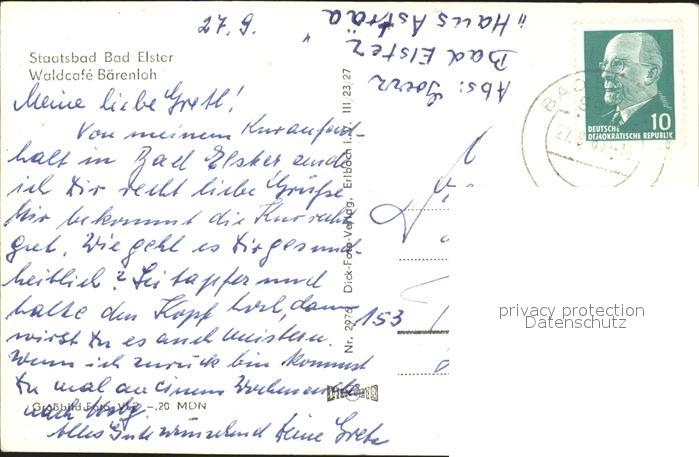 27.9.
Staatsbad Bad Elster
Waldcafé Bärenloh
Meine liebe Gretl!
Von meinem Kuraufent-
halt in Bad Elster sende
ich Dir recht liebe Grüße
Mir bekommt die Kur recht
gut. Wie geht es Dir gesund-
heitlich? Sei tapfer und
halte den Kopf hoch, dann
wirst Du es auch meistern.
Wenn ich zurück bin kommst
Du mal an einem Wochenende
nach
Alles Gute wünschend Deine Grete
Großbild-Foto -,20 MDN
Abs:
Bad Elster
"Haus Astraa"
Nr. 2976 Dick-Foto-Verlag, Erlbach i. V. III/23/27
153
DEUTSCHE
DEMOKRATISCHE REPUBLIK
10
BAD
privacy protection
Datenschutz